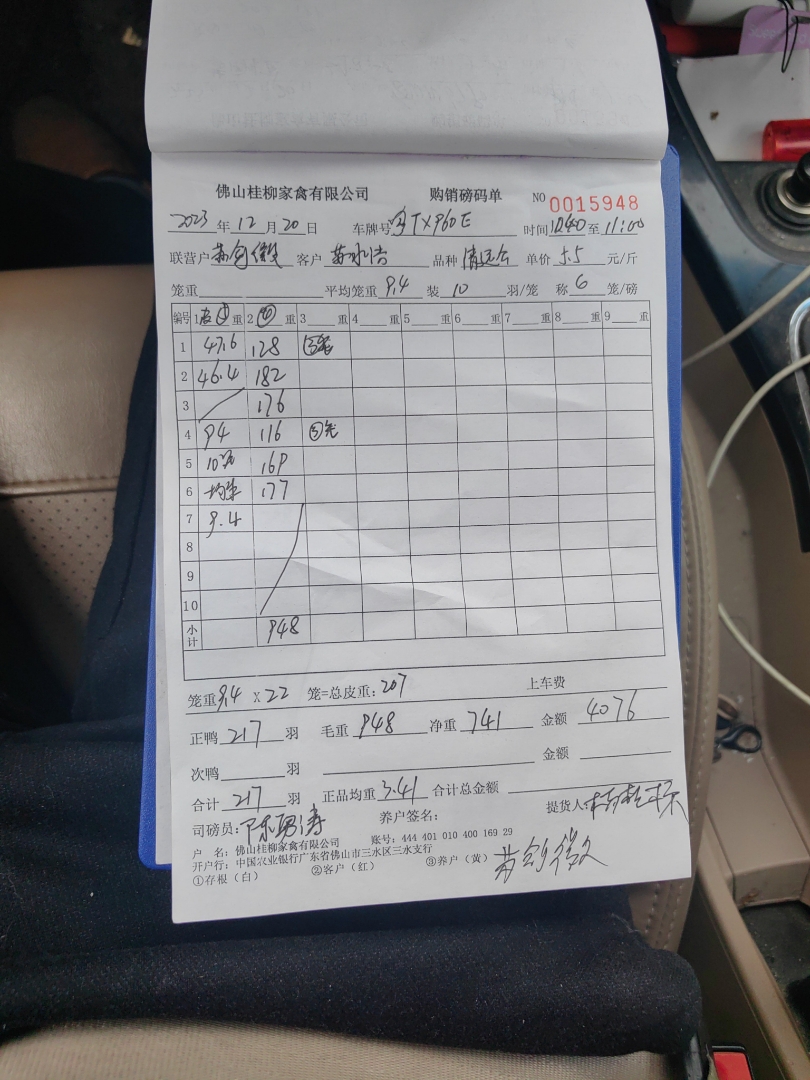 佛山桂柳家禽有限公司 购销磅码单 NO 0015948
2023 年 12 月 20 日 车牌号 TX960E 时间 1040 至 11:00
联营户 客户 品种 清远公 单价 5.5 元/斤
笼重 平均笼重 9.4 装 10 羽/笼 称 6 笼/磅
编号 1 重 2 重 3 重 4 重 5 重 6 重 7 重 8 重 9 重
1 47.6 128
2 46.4 182
3 176
4 94 116
5 10 169
6 177
7 9.4
8
9
10
小计 948
笼重 9.4 X 22 笼=总皮重: 207 上车费
正鸭 217 羽 毛重 948 净重 741 金额 4076
次鸭 羽 金额
合计 217 羽 正品均重 3.41 合计总金额
司磅员: 养户签名: 提货人
户 名: 佛山桂柳家禽有限公司 账号: 444 401 010 400 169 29
开户行: 中国农业银行广东省佛山市三水区三水支行
①存根（白） ②客户（红） ③养户（黄）